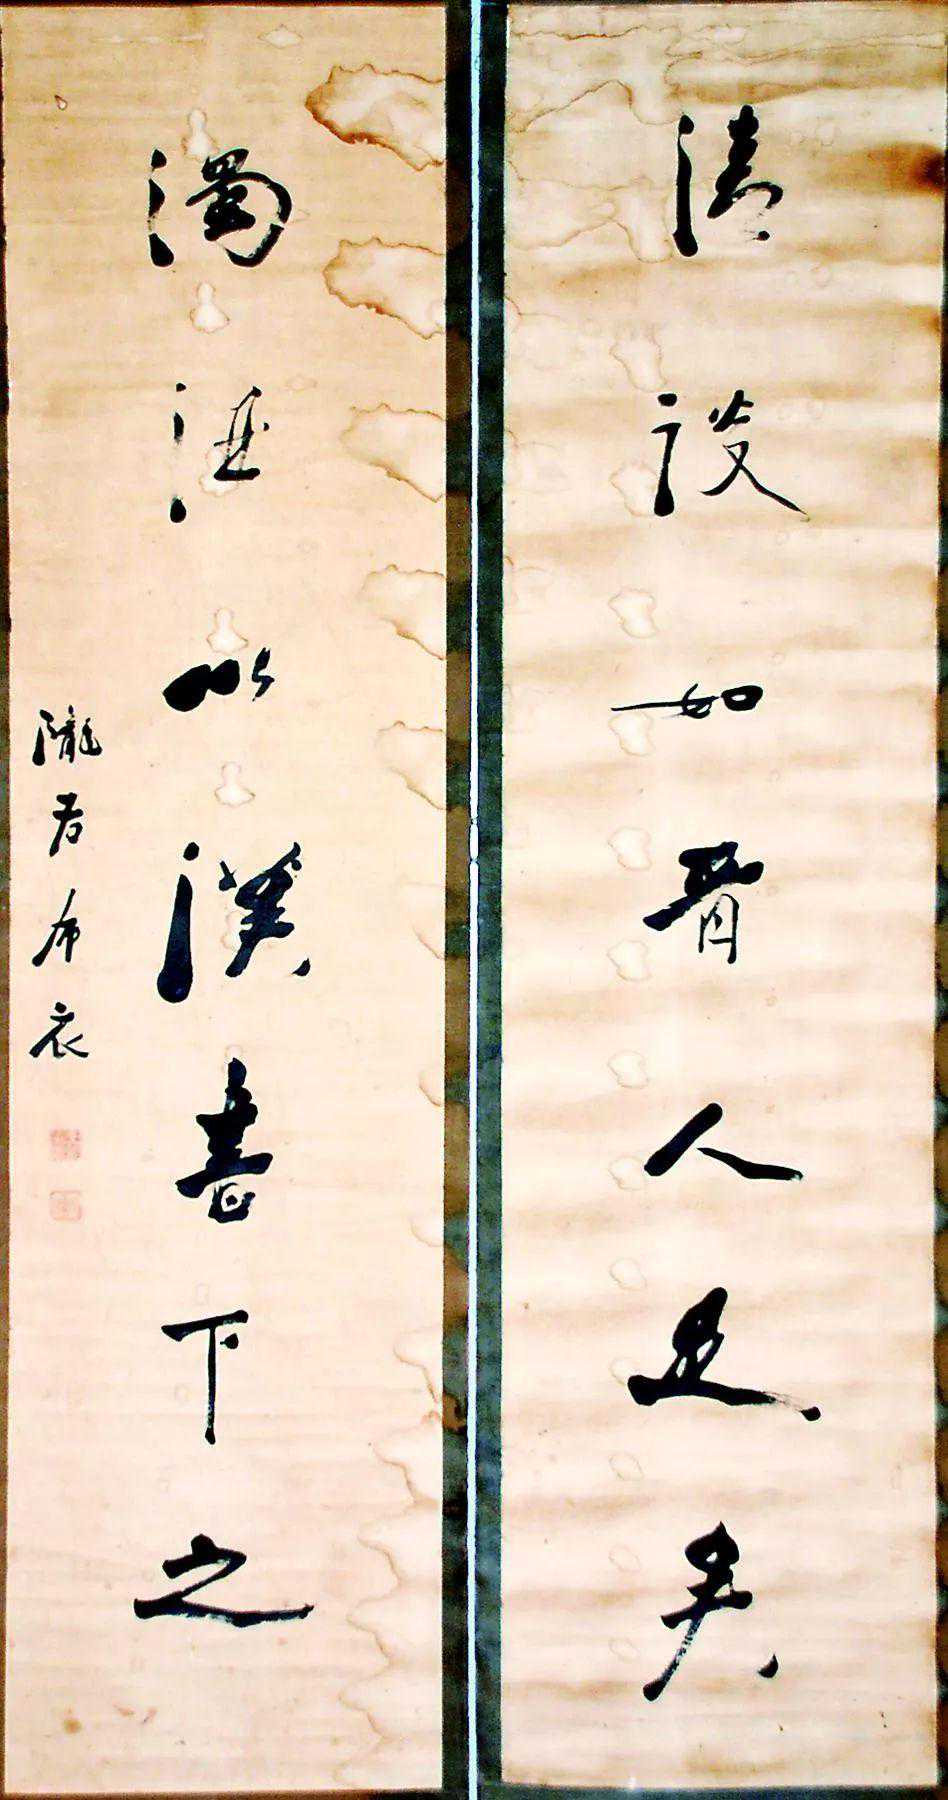 清談如晉人足矣
濁酒以漢書下之
隴右布衣